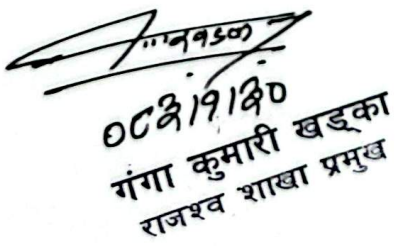 ०८२।१।३०
गंगा कुमारी खड्का
राजश्व शाखा प्रमुख